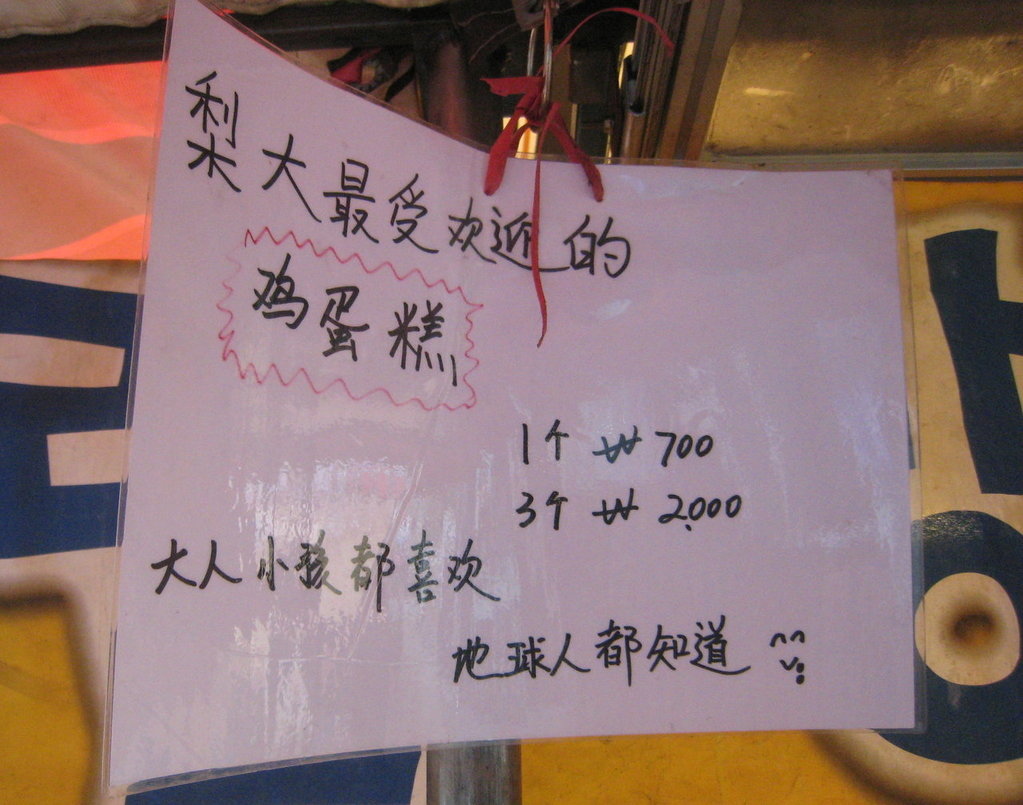 梨大最受欢迎的
鸡蛋糕
1个 ₩ 700
3个 ₩ 2,000
大人小孩都喜欢
地球人都知道 ^^